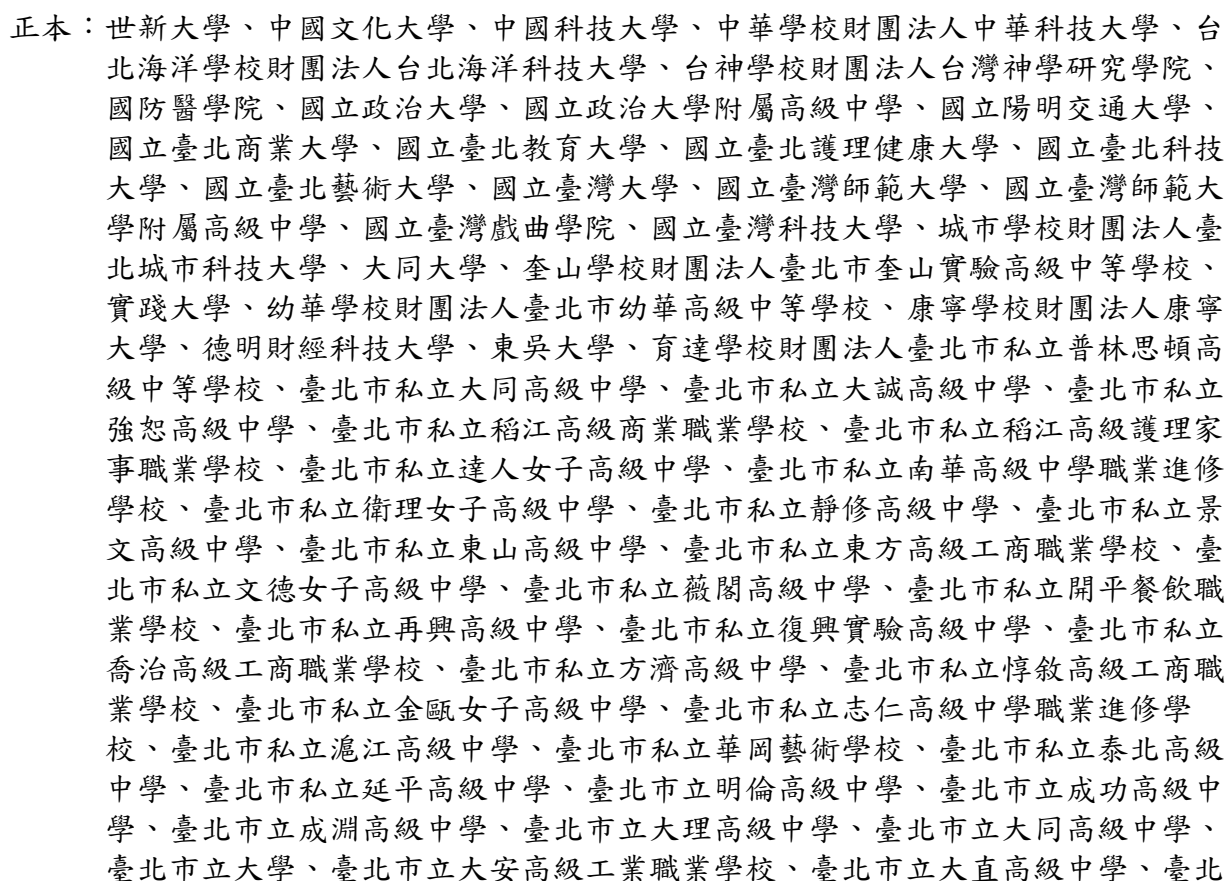 正本：世新大學、中國文化大學、中國科技大學、中華學校財團法人中華科技大學、台
北海洋學校財團法人台北海洋科技大學、台神學校財團法人台灣神學研究學院、
國防醫學院、國立政治大學、國立政治大學附屬高級中學、國立陽明交通大學、
國立臺北商業大學、國立臺北教育大學、國立臺北護理健康大學、國立臺北科技
大學、國立臺北藝術大學、國立臺灣大學、國立臺灣師範大學、國立臺灣師範大
學附屬高級中學、國立臺灣戲曲學院、國立臺灣科技大學、城市學校財團法人臺
北城市科技大學、大同大學、奎山學校財團法人臺北市奎山實驗高級中等學校、
實踐大學、幼華學校財團法人臺北市幼華高級中等學校、康寧學校財團法人康寧
大學、德明財經科技大學、東吳大學、育達學校財團法人臺北市私立普林思頓高
級中等學校、臺北市私立大同高級中學、臺北市私立大誠高級中學、臺北市私立
強恕高級中學、臺北市私立稻江高級商業職業學校、臺北市私立稻江高級護理家
事職業學校、臺北市私立達人女子高級中學、臺北市私立南華高級中學職業進修
學校、臺北市私立衛理女子高級中學、臺北市私立靜修高級中學、臺北市私立景
文高級中學、臺北市私立東山高級中學、臺北市私立東方高級工商職業學校、臺
北市私立文德女子高級中學、臺北市私立薇閣高級中學、臺北市私立開平餐飲職
業學校、臺北市私立再興高級中學、臺北市私立復興實驗高級中學、臺北市私立
喬治高級工商職業學校、臺北市私立方濟高級中學、臺北市私立惇敘高級工商職
業學校、臺北市私立金甌女子高級中學、臺北市私立志仁高級中學職業進修學
校、臺北市私立滬江高級中學、臺北市私立華岡藝術學校、臺北市私立泰北高級
中學、臺北市私立延平高級中學、臺北市立明倫高級中學、臺北市立成功高級中
學、臺北市立成淵高級中學、臺北市立大理高級中學、臺北市立大同高級中學、
臺北市立大學、臺北市立大安高級工業職業學校、臺北市立大直高級中學、臺北